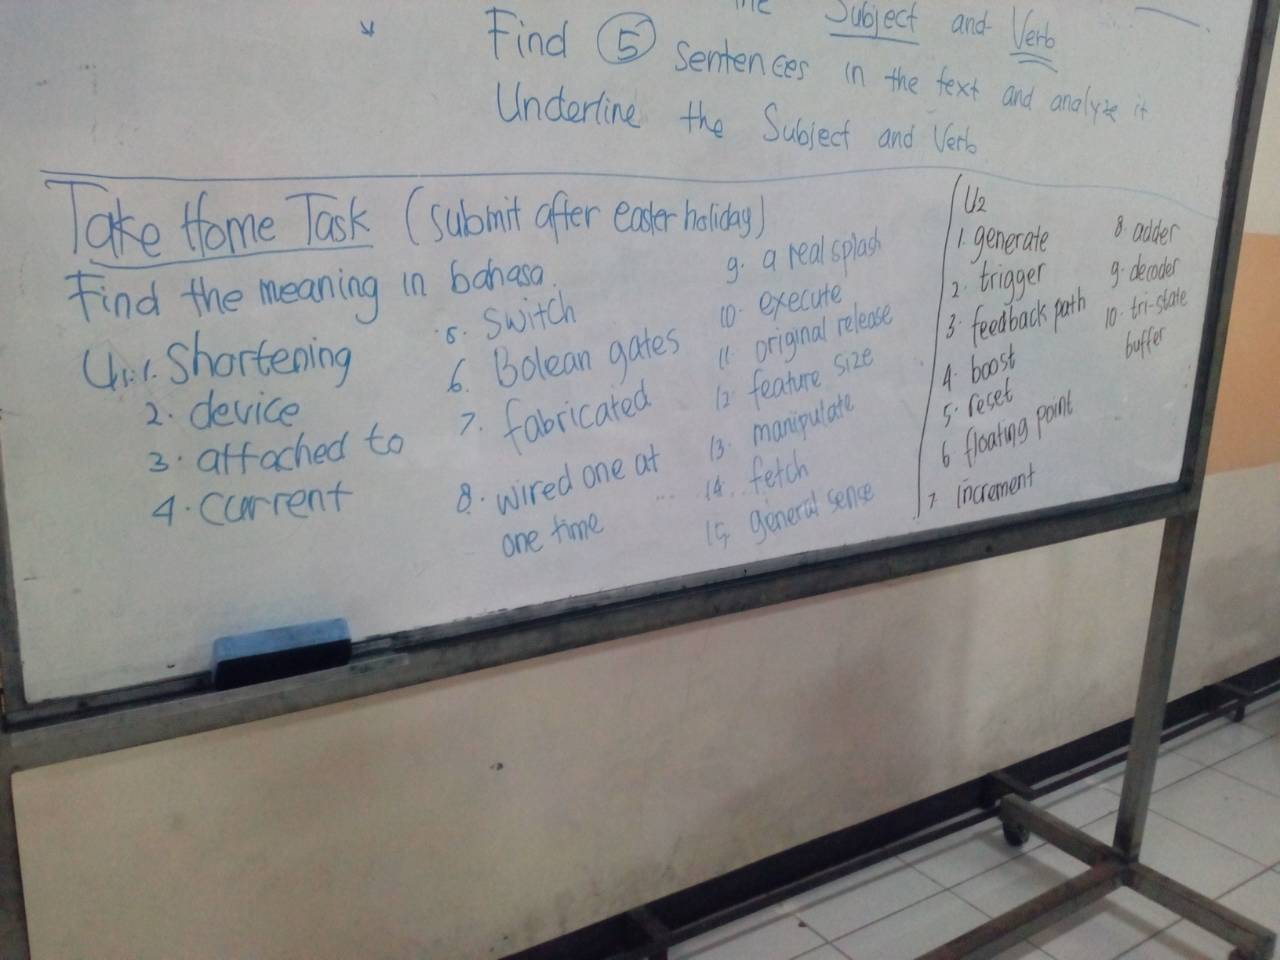 the Subject and Verb
Find 5 sentences in the text and analyze it
Underline the Subject and Verb
Take Home Task (submit after easter holiday)
Find the meaning in bahasa.
U1. 1. Shortening
2. device
3. attached to
4. current
5. switch
6. Bolean gates
7. fabricated
8. wired one at
one time
9. a real splash
10. execute
11. original release
12. feature size
13. manipulate
14. fetch
15. general sense
U2
1. generate
2. trigger
3. feedback path
4. boost
5. reset
6. floating point
7. increment
8. adder
9. decoder
10. tri-state
buffer